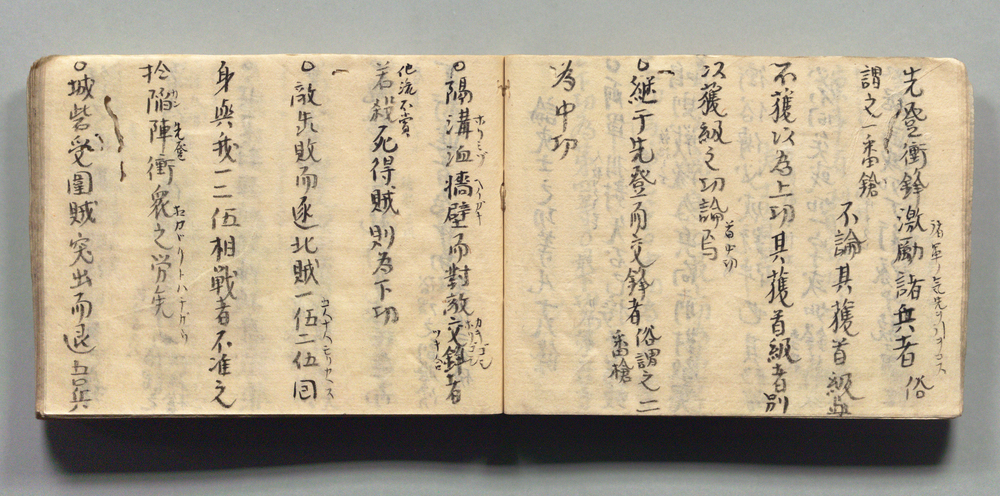 先登衝鋒激勵諸兵者俗
謂之一番鎗
不論其獲首級與
不獲以為上功其獲首級者別
以獲級之功論焉
首功
為中功
○継于先登而交鋒者俗謂之二
番槍
○隔溝洫牆壁而對敵交鋒者
ホリミゾ
ヘイガキ
他流不賞
若殺死得賊則為下功
○敵先敗而逐北賊一伍二伍回
身與我一二伍相戦者不准之
於陥陣衝衆之労矣
先登
○城砦受圍賊突出而退吾兵